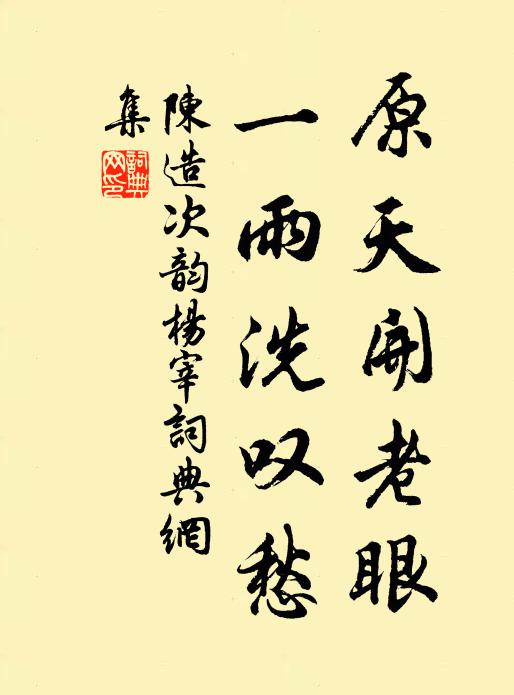 原天開老眼
一雨洗叹愁
陳造次韵楊宰詞典網
集
詞典
网印